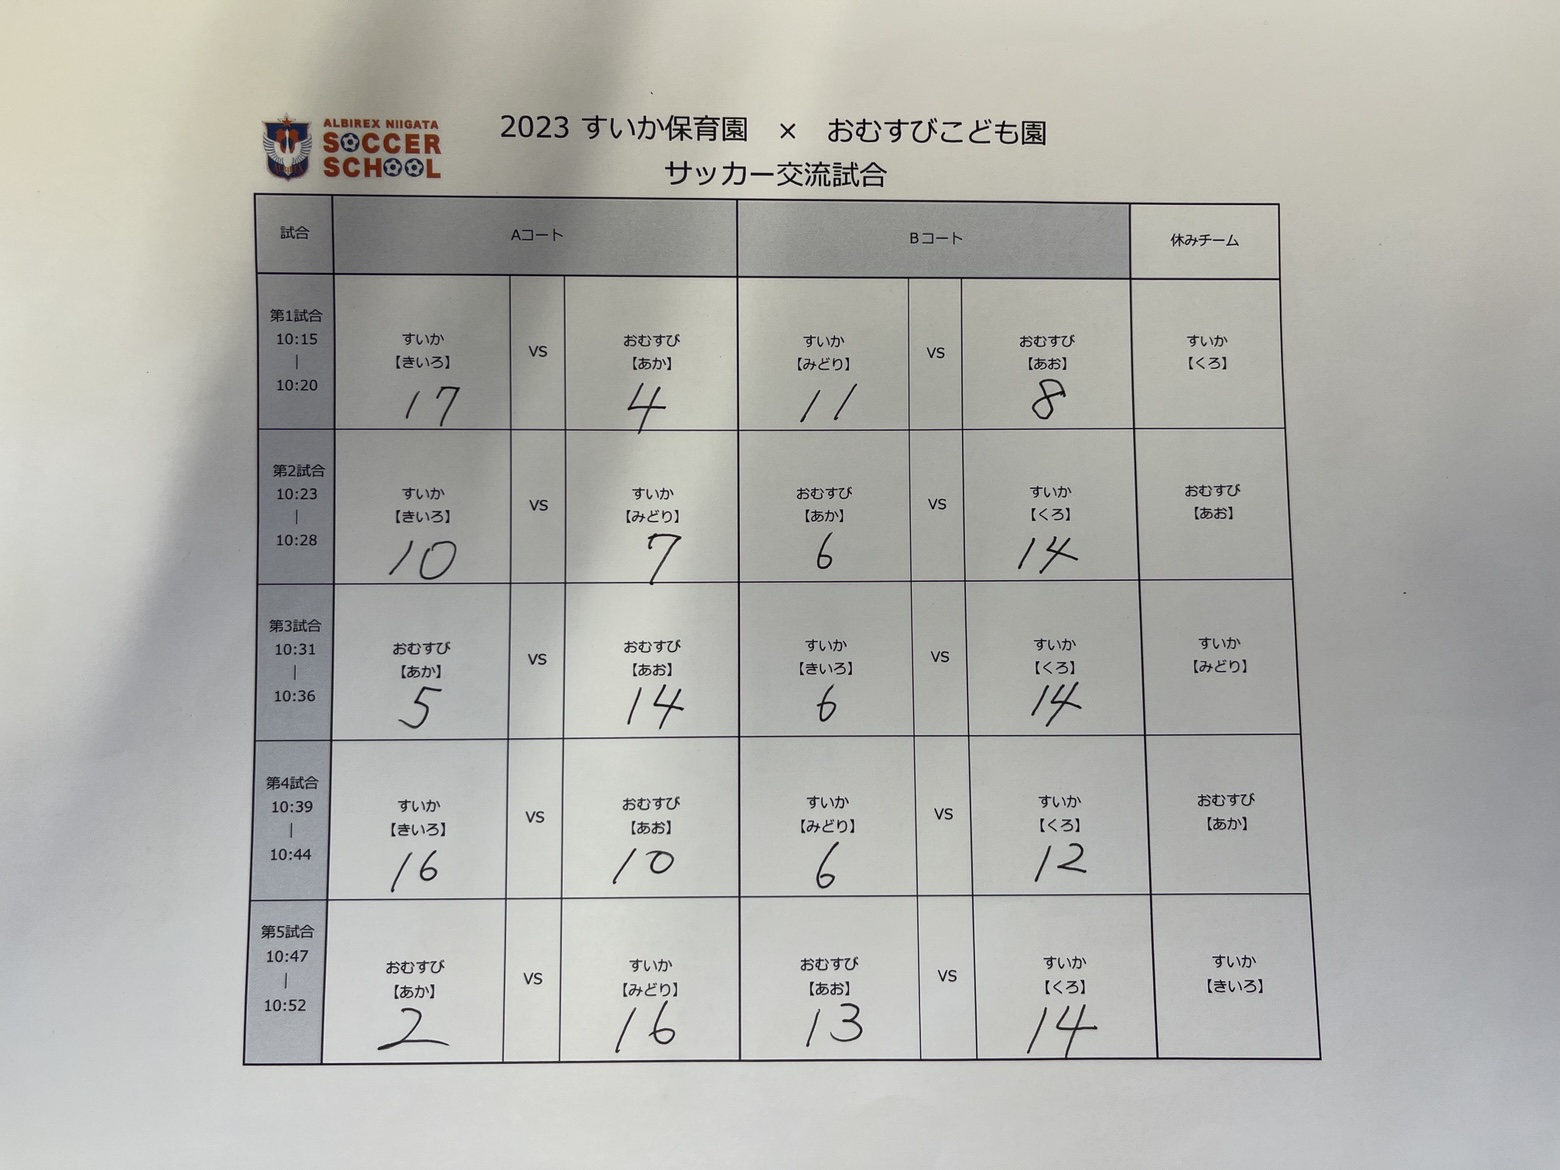 ALBIREX NIIGATA
SOCCER
SCHOOL
2023 すいか保育園 × おむすびこども園
サッカー交流試合
試合 Aコート Bコート 休みチーム
第1試合
10:15
|
10:20
すいか
【きいろ】
17
VS
おむすび
【あか】
4
すいか
【みどり】
11
VS
おむすび
【あお】
8
すいか
【くろ】
第2試合
10:23
|
10:28
すいか
【きいろ】
10
VS
すいか
【みどり】
7
おむすび
【あか】
6
VS
すいか
【くろ】
14
おむすび
【あお】
第3試合
10:31
|
10:36
おむすび
【あか】
5
VS
おむすび
【あお】
14
すいか
【きいろ】
6
VS
すいか
【くろ】
14
すいか
【みどり】
第4試合
10:39
|
10:44
すいか
【きいろ】
16
VS
おむすび
【あお】
10
すいか
【みどり】
6
VS
すいか
【くろ】
12
おむすび
【あか】
第5試合
10:47
|
10:52
おむすび
【あか】
2
VS
すいか
【みどり】
16
おむすび
【あお】
13
VS
すいか
【くろ】
14
すいか
【きいろ】